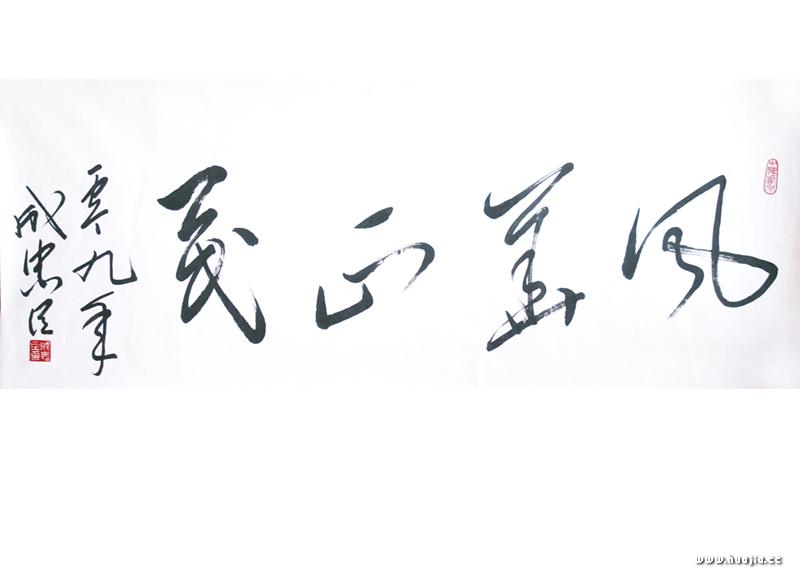 风华正茂
零九年
成忠臣
www.huajia.cc